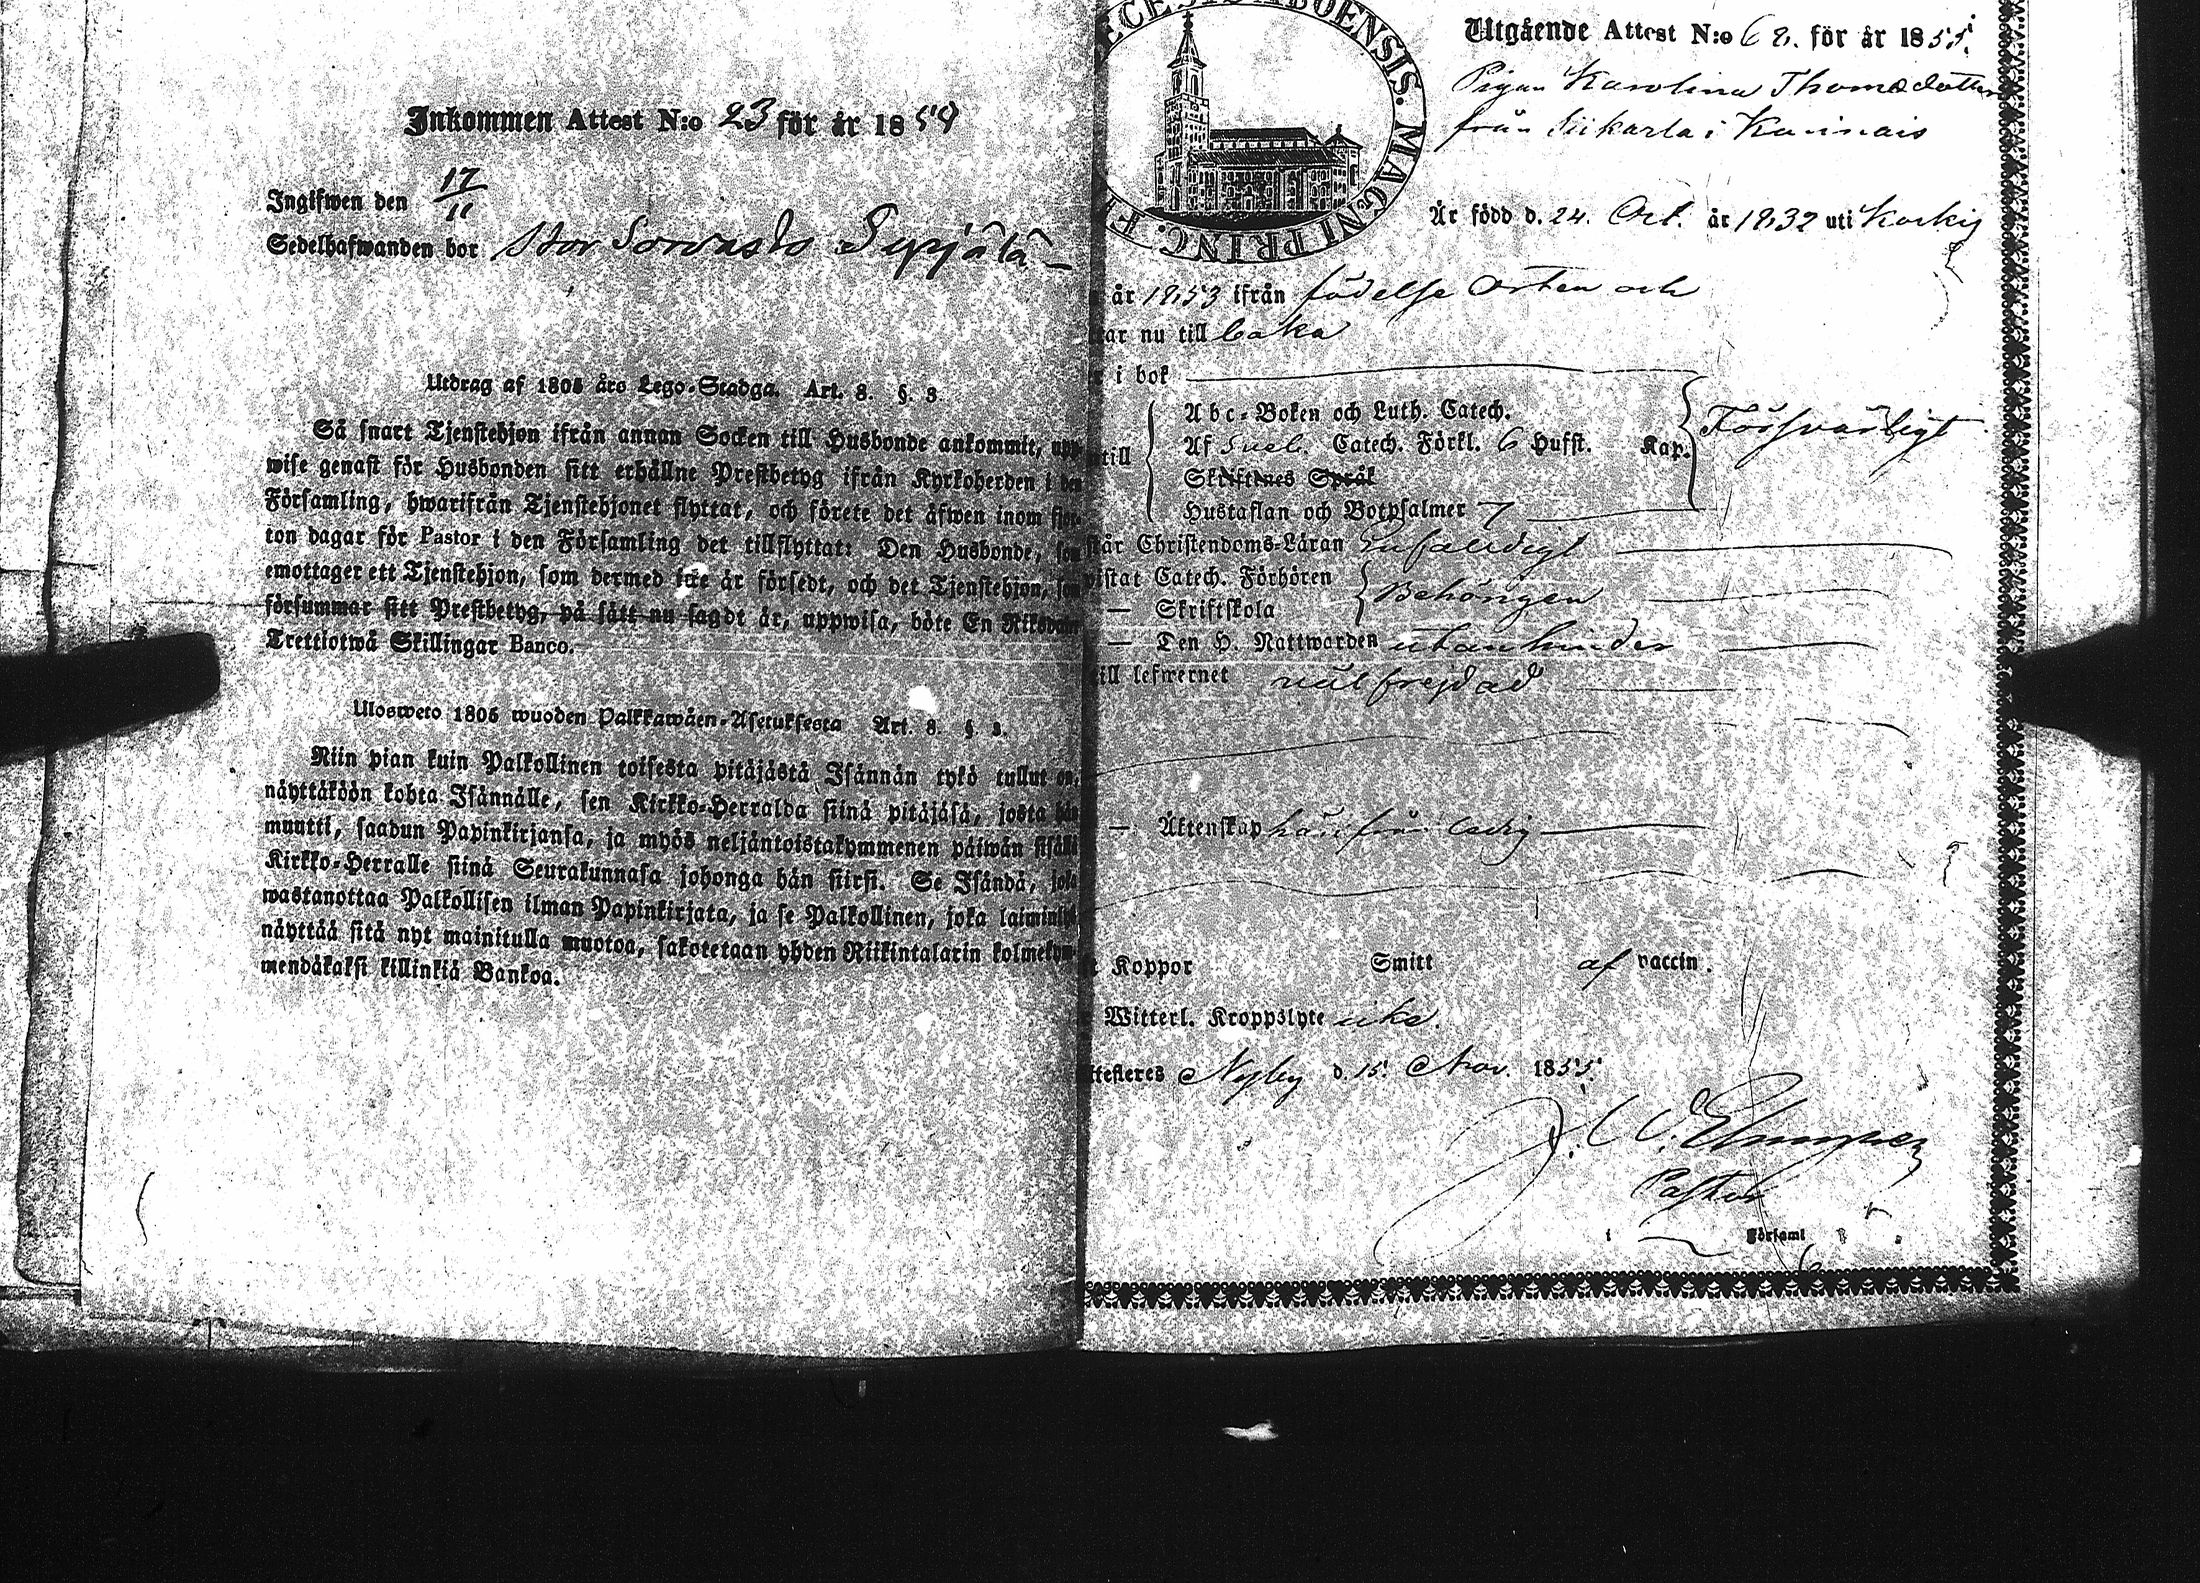 Inkommen Attest N:o 23 för år 1854
Ingifwen den 17/11
Sedelhafwanden bor Stor Sorvasto Syrjälä
Utdrag af 1805 års Lego-Stadga. Art. 8. §. 3.
Så snart Tjenstehjon ifrån annan Socken till Husbonde ankommit, upp-
wise genast för Husbonden sitt erhållne Prestbetyg ifrån Kyrkoherden i den
Församling, hwarifrån Tjenstehjonet flyttat, och förete det äfwen inom fjor-
ton dagar för Pastor i den Församling det tillflyttat: Den Husbonde, som
emottager ett Tjenstehjon, som dermed icke är försedt, och det Tjenstehjon, som
försummar sitt Prestbetyg, på sätt nu sagdt är, uppwisa, böte En Riksdaler
Trettiotwå Skillingar Banco.
Ulosweto 1805 wuoden Palkkawäen-Asetuksesta Art. 8. § 3.
Niin pian kuin Palkollinen toisesta pitäjästä Isännän tykö tullut on,
näyttäköön kohta Isännälle, sen Kirkko-Herralda siinä pitäjäsä, josta hän
muutti, saadun Papinkirjansa, ja myös neljäntoistakymmenen päiwän sisällä
Kirkko-Herralle siinä Seurakunnasa johonga hän siirsi. Se Isändä, joka
wastanottaa Palkollisen ilman Papinkirjata, ja se Palkollinen, joka laiminlyö
näyttää sitä nyt mainitulla muotoa, sakotetaan yhden Riikintalarin kolmekym-
mendäkaksi killinkiä Bankoa.
ECESIS ABOENSIS. MAGNI PRINC. FI
Utgående Attest N:o 68. för år 1855.
Pigan Karolina Thomasdotter
från Siikarla i Karinais
Är född d. 24. Oct. år 1832 uti Koskis
år 1853 ifrån födelse Orten och
ar nu till baka
i bok
till
Abc-Boken och Luth. Catech.
Af Sveb. Catech. Förkl. 6 Hufst. Kap. Försvarligt
Skriftenes Språk
Hustaflan och Botpsalmer 7
står Christendoms-Läran Enfaldigt
istat Catech. Förhören
— Skriftskola Behörigen
— Den H. Nattwarden utan hinder
ill lefwernet väl frejdad
— Äktenskap härifrån ledig
Koppor Smitt af vaccin.
Witterl. Kroppslyte icke.
ttesteres Nyby d. 15. Nov. 1855.
Pastor
i Församl